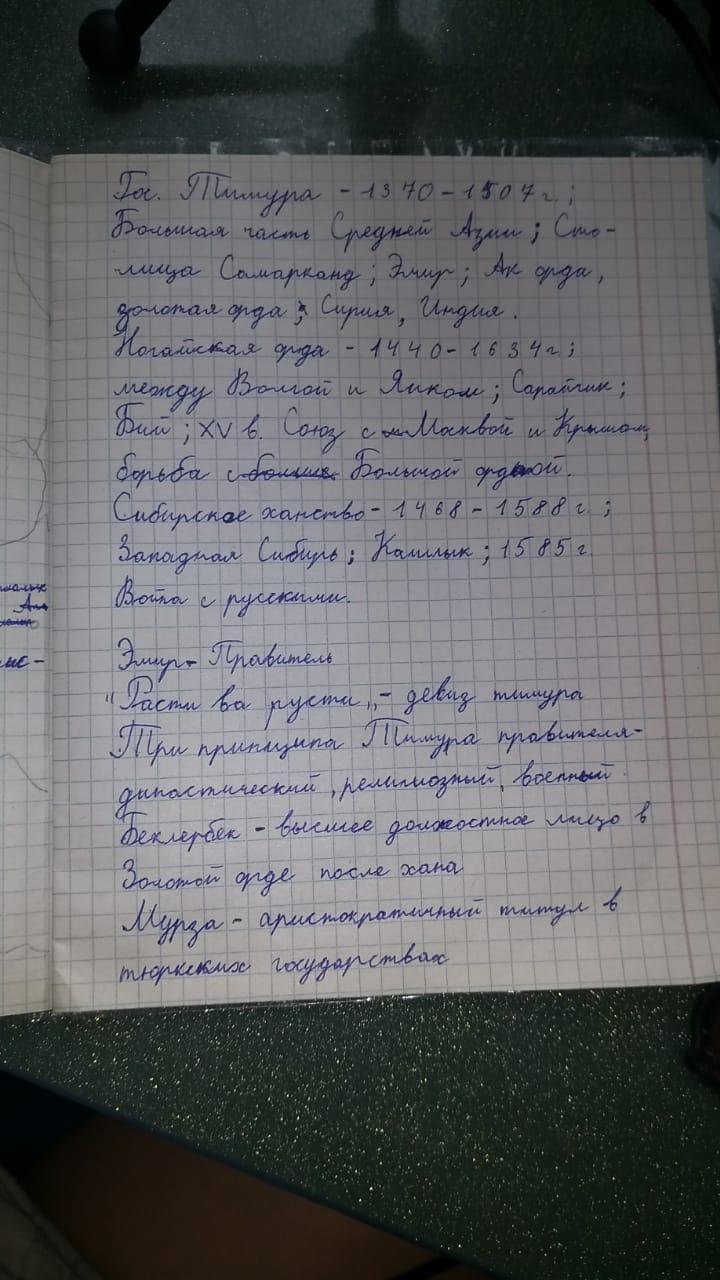 Гос. Тимура - 1370-1507 г.;
Большая часть Средней Азии; Сто-
лица Самарканд; Эмир; Ак орда,
золотая орда; Сирия, Индия.
Ногайская орда - 1440-1634г;
между Волгой и Яиком; Сарайчик;
Бий; XV в. Союз с Москвой и Крымом,
борьба с Большой ордой.
Сибирское ханство - 1468-1588 г.;
Западная Сибирь; Кашлык; 1585 г.
Война с русскими.
Эмир - Правитель
"Расти ва русти„ - девиз тимура
Три принципа Тимура правителя-
династический, религиозный, военный.
Беклербек - высшее должостное лицо в
Золотой орде после хана
Мурза - аристократичный титул в
тюркских государствах